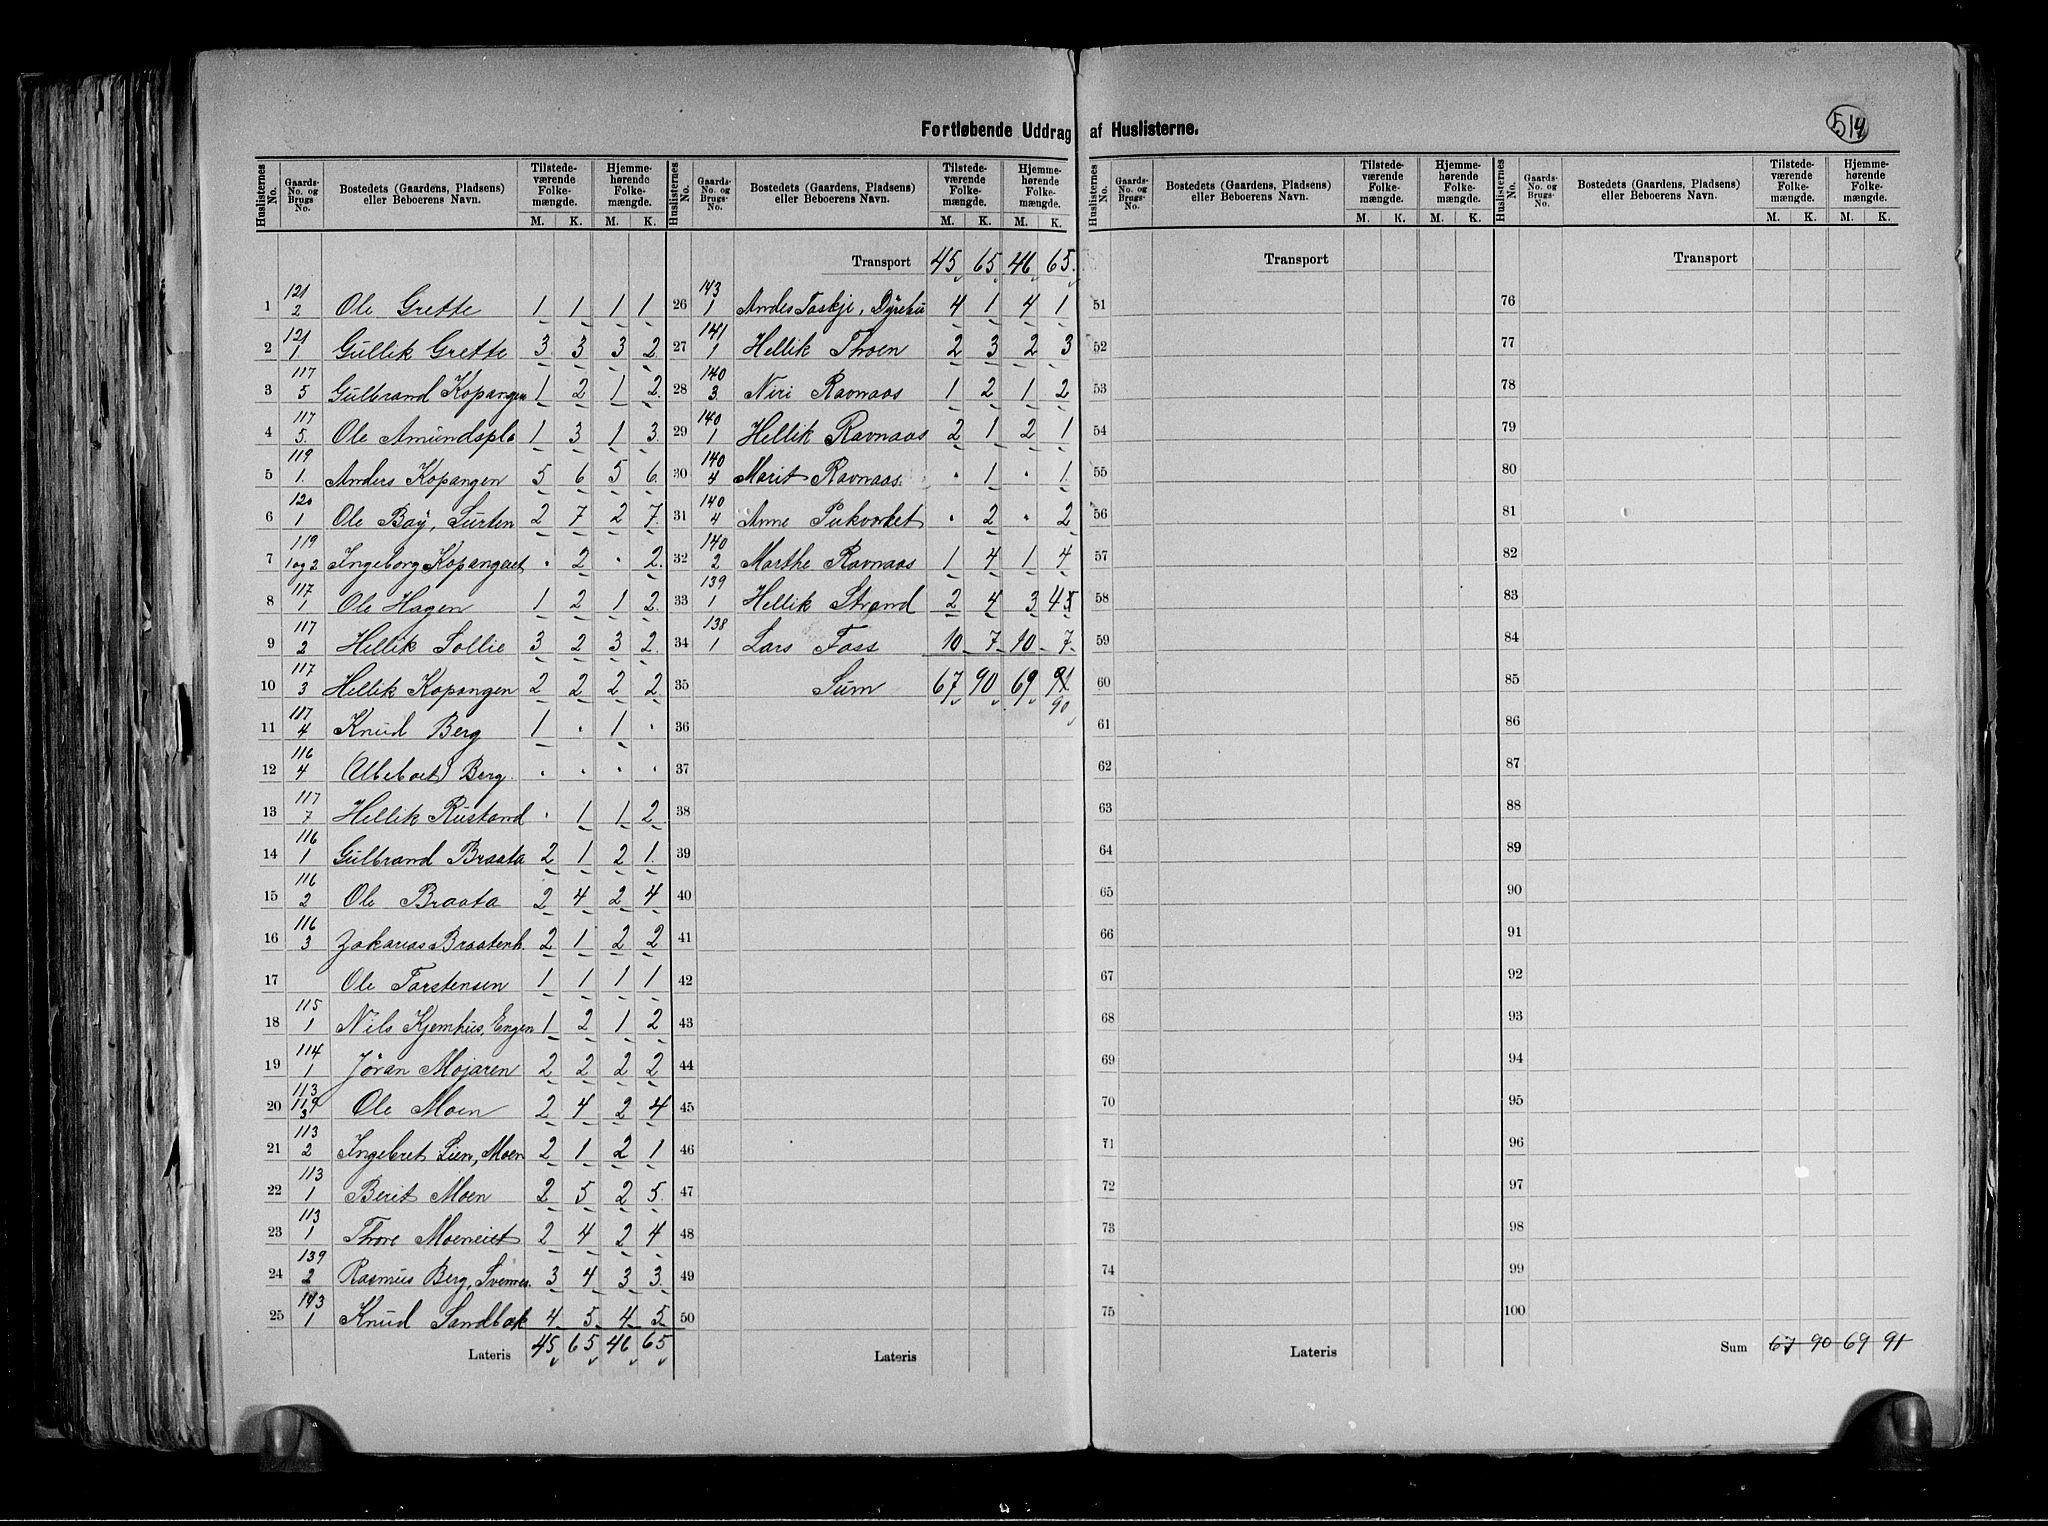 514
Fortløbende Uddrag af Huslisterne.
Huslisternes No. | Gaards-No. og Brugs-No. | Bostedets (Gaardens, Pladsens) eller Beboerens Navn. | Tilstedeværende Folkemængde. M. K. | Hjemmehørende Folkemængde. M. K.
1 | 121 2 | Ole Grette | 1 | 1 | 1 | 1
2 | 121 1 | Gullik Grette | 3 | 3 | 3 | 2
3 | 117 5 | Gulbrand Kopangen | 1 | 2 | 1 | 2
4 | 117 5. | Ole Amundspl. | 1 | 3 | 1 | 3
5 | 119 1. | Anders Kopangen | 5 | 6 | 5 | 6
6 | 120 1 | Ole Bøÿ, Surten | 2 | 7 | 2 | 7
7 | 119 1 og 2 | Ingeborg Kopangeeiet | . | 2 | . | 2
8 | 117 1 | Ole Hagen | 1 | 2 | 1 | 2
9 | 117 2 | Hellik Sollie | 3 | 2 | 3 | 2
10 | 117 3 | Hellik Kopangen | 2 | 2 | 2 | 2
11 | 117 4 | Knud Berg | 1 | . | 1 | .
12 | 116 4 | Ubeboet Berg. | . | . | . | .
13 | 117 7 | Hellik Rustand | . | 1 | 1 | 2
14 | 116 1 | Gulbrand Braata | 2 | 1 | 2 | 1
15 | 116 2 | Ole Braata | 2 | 4 | 2 | 4
16 | 116 3 | Zakarias Braatenh. | 2 | 1 | 2 | 2
17 | Ole Torstensen | 1 | 1 | 1 | 1
18 | 115 1 | Nils Kjemhus, Engen | 1 | 2 | 1 | 2
19 | 114 1 | Jøran Mojaren | 2 | 2 | 2 | 2
20 | 113 119 3 | Ole Moen | 2 | 4 | 2 | 4
21 | 113 2 | Ingebret Lien, Moen | 2 | 1 | 2 | 1
22 | 113 1 | Berit Moen | 2 | 5 | 2 | 5
23 | 113 1 | Thore Moeneiet | 2 | 4 | 2 | 4
24 | 139 2 | Rasmus Berg, Svennes. | 3 | 4 | 3 | 3
25 | 143 1 | Knud Sandbæk | 4 | 5 | 4 | 5
Lateris | 45 | 65 | 46 | 65
Huslisternes No. | Gaards-No. og Brugs-No. | Bostedets (Gaardens, Pladsens) eller Beboerens Navn. | Tilstedeværende Folkemængde. M. K. | Hjemmehørende Folkemængde. M. K.
Transport | 45 | 65 | 46 | 65
26 | 143 1 | Andes Taskje, Dÿrehu | 4 | 1 | 4 | 1
27 | 141 1 | Hellik Thoen | 2 | 3 | 2 | 3
28 | 140 3 | Niri Ravnaas | 1 | 2 | 1 | 2
29 | 140 1 | Hellik Ravnaas | 2 | 1 | 2 | 1
30 | 140 4 | Marit Ravnaas. | . | 1 | . | 1
31 | 140 4 | Anne Pukværket | . | 2 | . | 2
32 | 140 2 | Marthe Ravnaas | 1 | 4 | 1 | 4
33 | 139 1 | Hellik Strand | 2 | 4 | 3 | 4 5
34 | 138 1 | Lars Foss | 10 | 7 | 10 | 7
35 | Sum | 67 | 90 | 69 | 91
90
36
37
38
39
40
41
42
43
44
45
46
47
48
49
50
Lateris
Huslisternes No. | Gaards-No. og Brugs-No. | Bostedets (Gaardens, Pladsens) eller Beboerens Navn. | Tilstedeværende Folkemængde. M. K. | Hjemmehørende Folkemængde. M. K.
Transport
51
52
53
54
55
56
57
58
59
60
61
62
63
64
65
66
67
68
69
70
71
72
73
74
75
Lateris
Huslisternes No. | Gaards-No. og Brugs-No. | Bostedets (Gaardens, Pladsens) eller Beboerens Navn. | Tilstedeværende Folkemængde. M. K. | Hjemmehørende Folkemængde. M. K.
Transport
76
77
78
79
80
81
82
83
84
85
86
87
88
89
90
91
92
93
94
95
96
97
98
99
100
Sum | 67 | 90 | 69 | 91